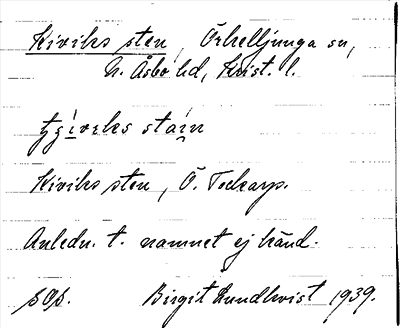 Kiviks sten, Örkelljunga sn,
N. Åsbo hd, Krist. l.
sta
Kiviks sten, Ö. Tockarp.
Anledn. t. namnet ej känd.
Birgit Lundkvist 1939.